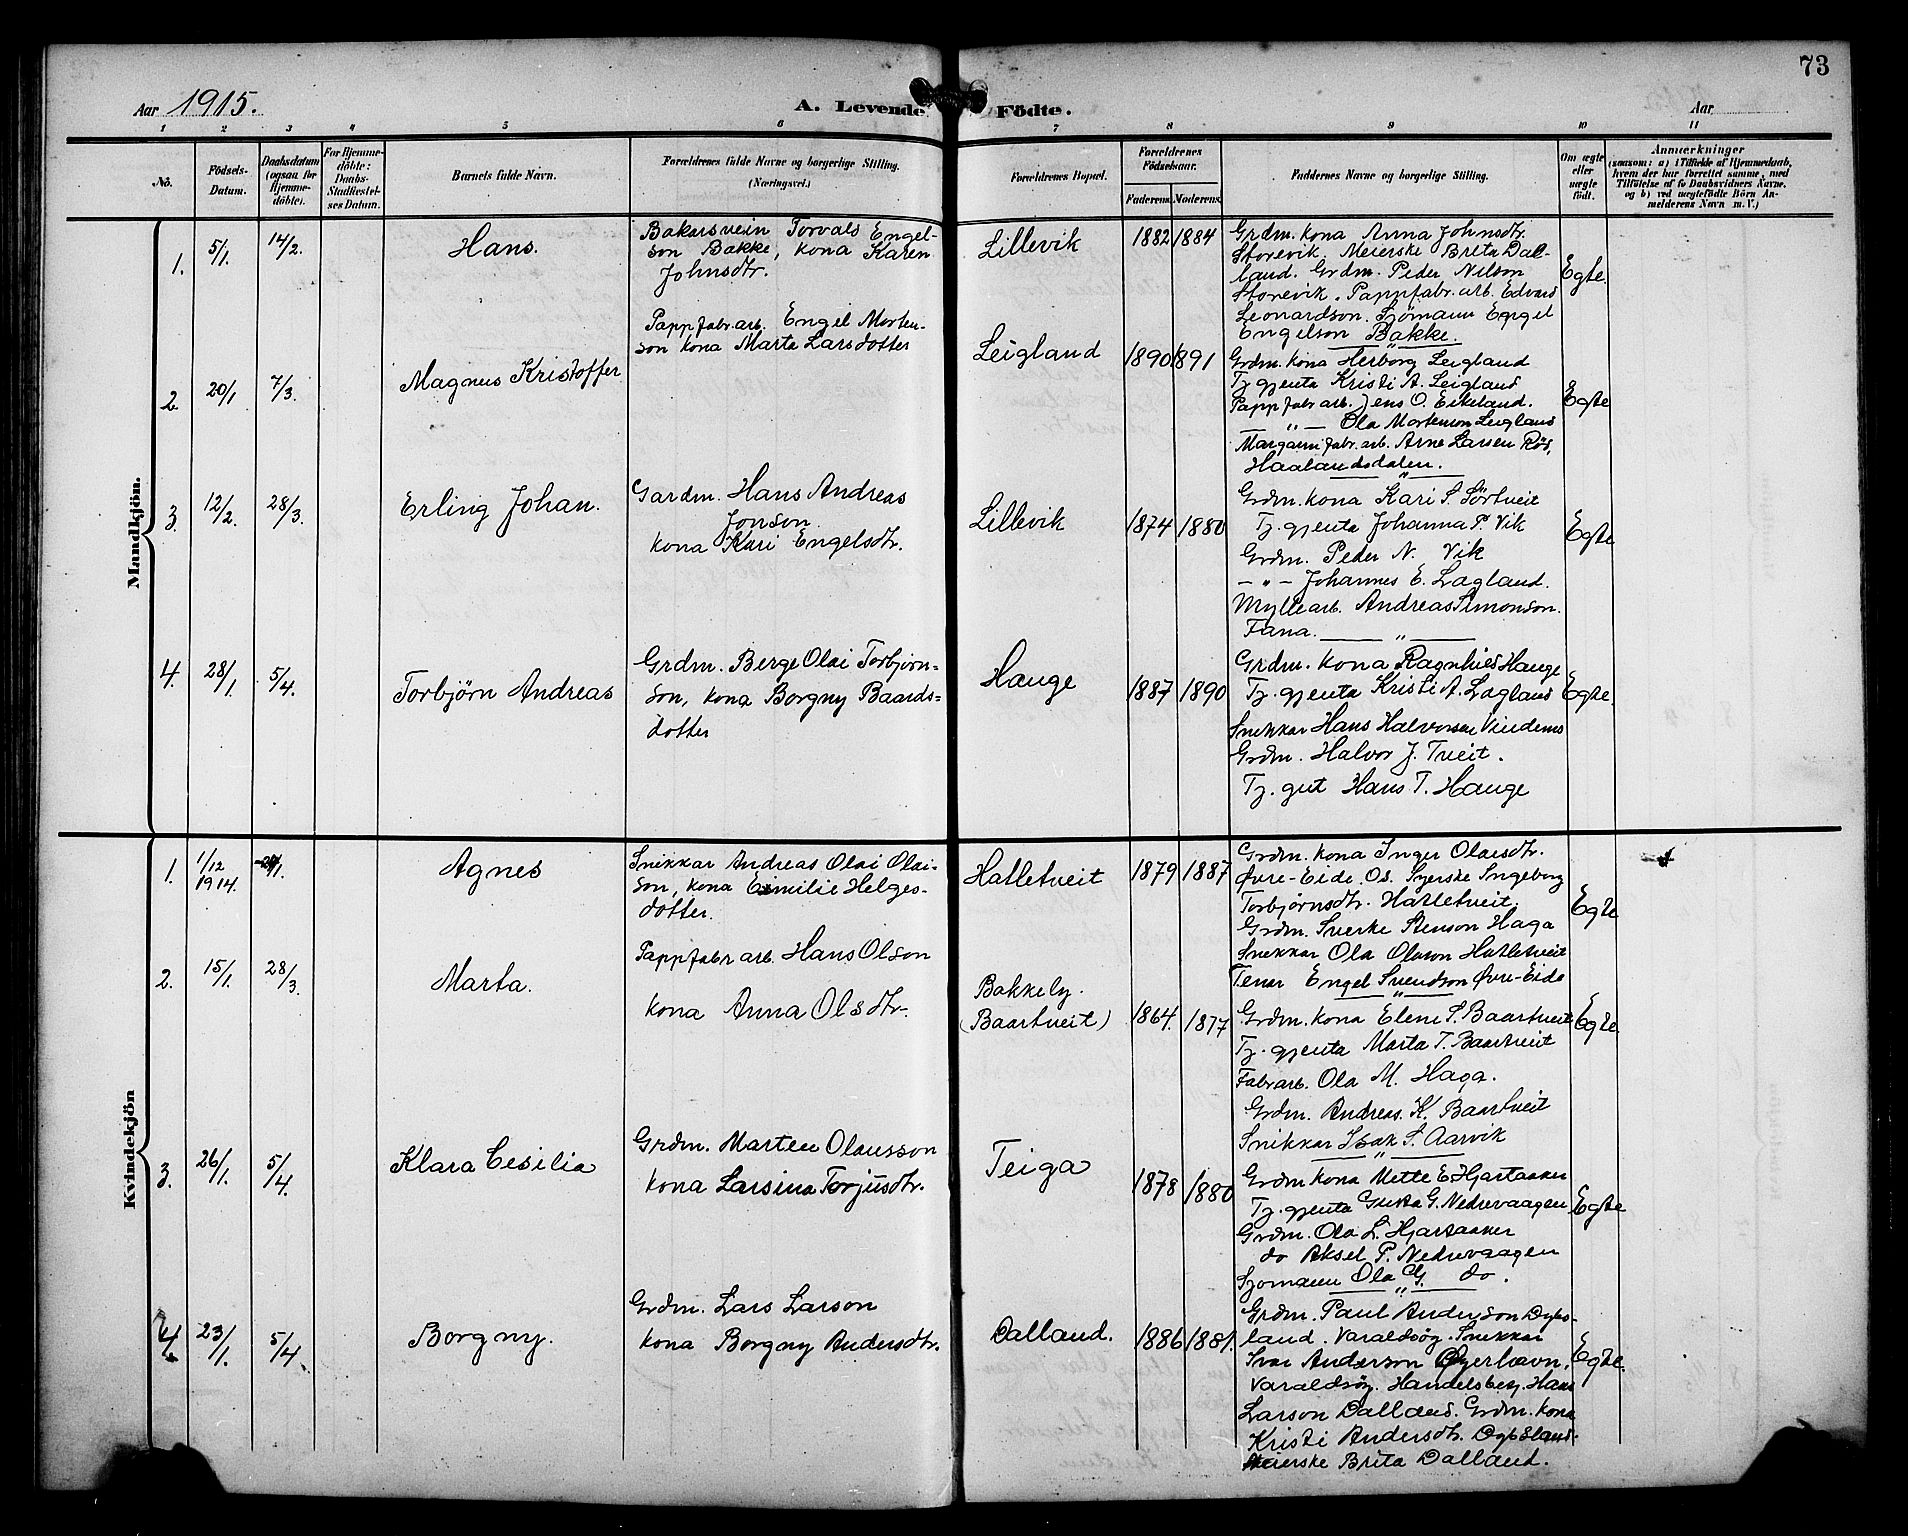 73
Aar 1915.
A. Levende Födte.
Aar
1 2 3 4 5 6 7 8 9 10 11
No.
Födsels-Datum.
Daabsdatum (ogsaa for Hjemme-döbte).
For Hjemme-döbte: Daabs-Stadfæstel-ses Datum.
Barnets fulde Navn.
Forældrenes fulde Navne og borgerlige Stilling.
(Næringsvei.)
Forældrenes Bopæl.
Forældrenes Födselsaar.
Faderens. Moderens.
Faddernes Navne og borgerlige Stilling.
Om ægte eller uægte födt.
Anmærkninger
(saasom: a) i Tilfælde af Hjemmedaab,
hvem der har forrettet samme, med
Tilföielse af to Daabsvidners Navne,
og b) ved uægtefödte Börn An-
melderens Navn m. V.)
Mandkjön.
1. 5/1. 14/2. Hans.
Bakarsvein Torvald Engel-
son Bakke, kona Karen
Johnsdtr.
Lillevik 1882 1884
Grdm. kona Anna Johnsdtr.
Storevik. Meierske Brita Dal-
land. Grdm. Peder Nilson
Storevik. Pappfabr. arb. Edvard
Leonardson. Sjömann Engel
Engelson Bakke.
Egte.
2. 20/1 7/3. Magnus Kristoffer
Pappfabr. arb. Engel Morten-
son kona Marta Larsdotter
Leigland 1890 1891
Grdm. kona Herborg Leigland
Tj. gjenta Kristi A. Leigland
Pappfabr arb. Jens O. Eikeland.
— " — Ola Mortenson Leigland
Margarinfabr. arb. Arne Larsen Röd,
Haalandsdalen.
Egte
3. 12/2. 28/3. Erling Johan.
Gardm. Hans Andreas
Jonson.
kona Kari Engelsdtr.
Lillevik 1874 1880
Grdm. kona Kari S. Sörtveit
Tj. gjenta Johanna P. Vik
Grdm. Peder N. Vik
— " — Johannes E. Lagland.
Myllearb. Andreas Simonson.
Fana. — " —
Egte
4. 28/1. 5/4. Torbjörn Andreas
Grdm. Berge Olai Torbjörn-
son, kona Borgny Baards-
dotter
Hauge 1887 1890
Grdm. kona Ragnhild Hauge
Tj. gjenta Kristi A. Lagland
Snikkar Hans Halvorsen
Grdm. Halvor J. Tveit.
Tj. gut Hans T. Hauge
Egte.
Kvindekjön
1. 1/12 1914. Agnes
Snikkar Andreas Olai Olai-
son, kona Emilie Helges-
dotter.
Hatletveit 1879 1887
Grdm. kona Inger Olaisdtr.
Övre-Eide. Os. Syerske Ingeborg
Torbjörnsdtr. Hatletveit.
Grdm. Sverke Stenson Haga
Snikkar Ola Olason Hatletveit
Tenar Engel Svendson Övre-Eide
Egte
2. 15/1. 28/3. Marta.
Pappfabr arb. Hans Olson
kona Anna Olsdtr.
Bakkely.
(Baartveit) 1864. 1877
Grdm. kona Elene S. Baartveit
Tj. gjenta Marta T. Baartveit
Fabr arb. Ola M. Haga.
Grdm. Andreas. K. Baartveit
Snikkar Isak S. Aarvik
Egte.
3. 26/1. 5/4. Klara Cesilia
Grdm. Marten Olausson
kona Larsina Torjusdtr.
Teiga 1878 1880
Grdm. kona Mette E Hjartaaker
Tj. gjenta Gusta G. Nedrevaagen
Grdm. Ola L. Hjartaaker
do Aksel P. Nedrevaagen
Sjomann Ola G. do.
Egte
4. 23/1. 5/4. Borgny.
Grdm. Lars Larson
kona Borgny Andersdtr.
Dalland. 1886 1881.
Grdm. Paul Anderson Dybs-
land. Varaldsöy. Snikkar
Ivar Anderson Öyerhavn,
Varaldsöy. Handelsbetj. Hans
Larson Dalland. Grdm. kona
Kristi Andersdtr. Dybsland.
Meierske Brita Dalland.
Egte.